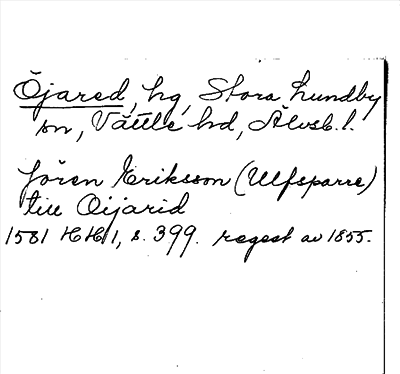 Öjared, hg, Stora Lundby
sn, Vättle hd, Älvsb. l.
Jören Eriksson (Ulfsparre)
till Öijarid
1581 HH 1, s. 399. regest av 1855.